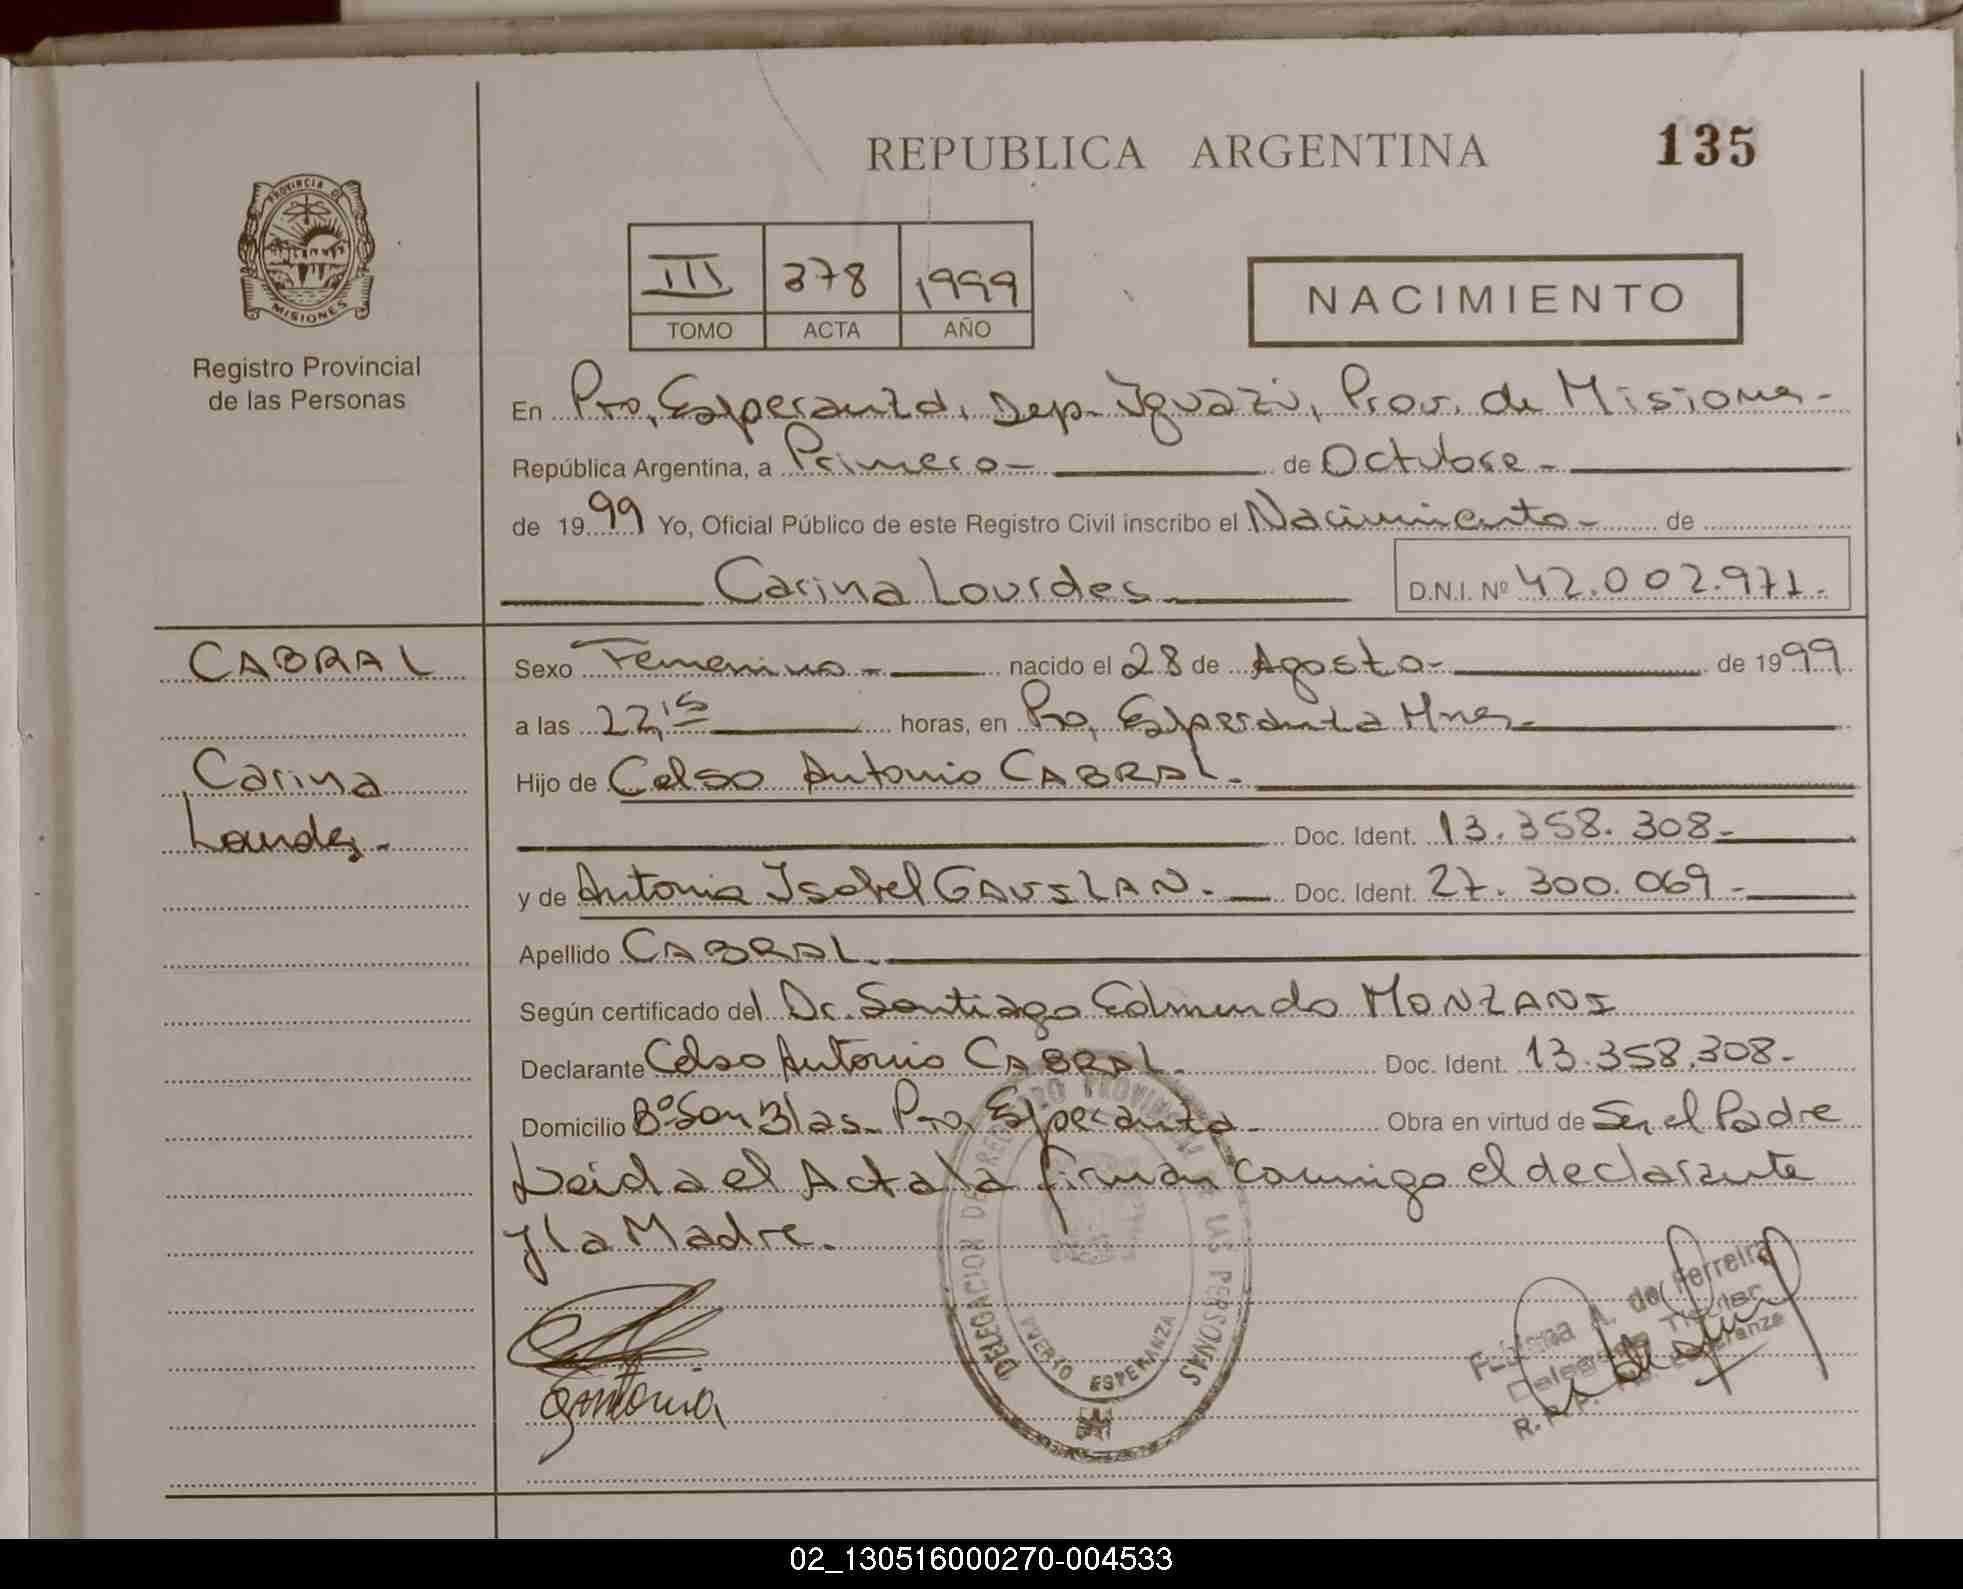 REPUBLICA ARGENTINA
135
PROVINCIA DE
MISIONES
Registro Provincial
de las Personas
III 378 1999
TOMO ACTA AÑO
NACIMIENTO
En Pto, Esperanza, Dep. Iguazú, Prov. de Misiones-
República Argentina, a Primero- de Octubre-
de 1999 Yo, Oficial Público de este Registro Civil inscribo el Nacimiento- de
Carina Lourdes
D.N.I. Nº 42.002.971.-
CABRAL
Carina
Lourdes.-
Sexo Femenino- nacido el 28 de Agosto- de 1999
a las 22,15 horas, en Pto, Esperanza Mnes-
Hijo de Celso Antonio CABRAL.-
Doc. Ident. 13.358.308-
y de Antonia Isabel GAUSLAN.- Doc. Ident. 27.300.069-
Apellido CABRAL.
Según certificado del Dr. Santiago Edmundo MONZANI
Declarante Celso Antonio CABRAL. Doc. Ident. 13.358.308-
Domicilio Bº San Blas- Pto, Esperanza- Obra en virtud de Ser el Padre
Leida el Acta la firman conmigo el declarante
y la Madre.
Antonia
DELEGACION DE REGISTRO PROVINCIAL DE LAS PERSONAS
PUERTO ESPERANZA
A. de Ferreira
Titular
R.P.P. Pto. Esperanza
02_130516000270-004533